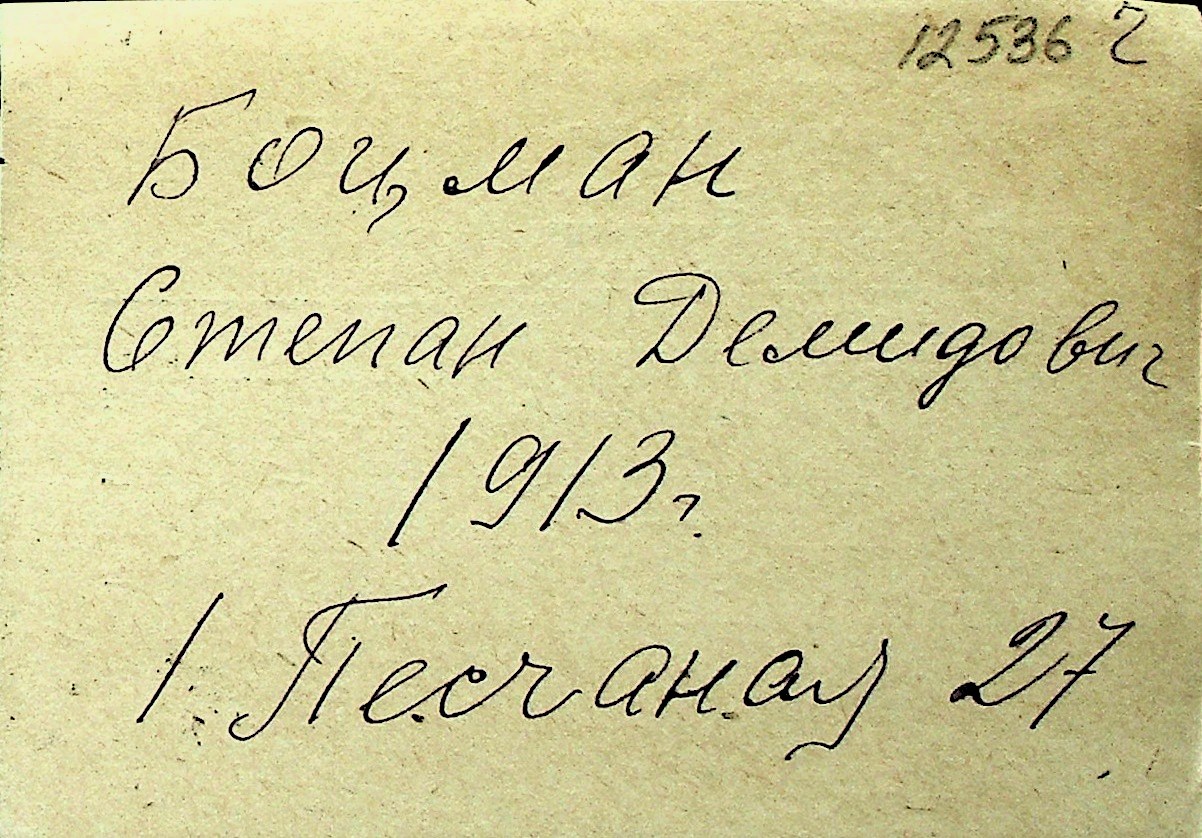 12536 г
Боцман
Степан Демидович
1913г.
1 Песчаная 27